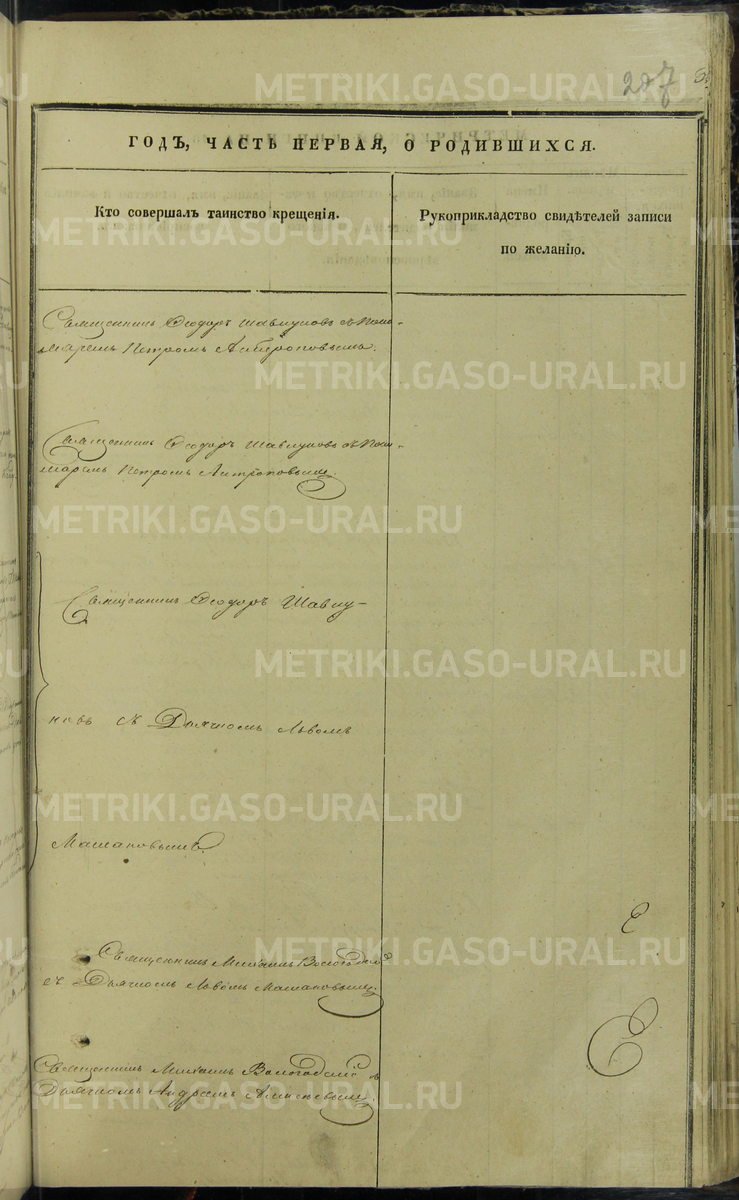 207
ГОДЪ, ЧАСТЬ ПЕРВАЯ, О РОДИВШИХСЯ.
Кто совершалъ таинство крещенія.
Рукоприкладство свидѣтелей записи
по желанію.
Священникъ Ѳеодоръ Шавкуновъ съ Поно-
маремъ Петромъ Антроповымъ.
Священникъ Ѳеодоръ Шавкуновъ съ Поно-
маремъ Петромъ Антроповымъ.
Священникъ Ѳеодоръ Шавку-
новъ съ Дьячкомъ Львомъ
Священникъ Михаилъ Вологодскій
съ Дьячкомъ Львомъ
Священникъ Михаилъ Вологодскій съ
Дьячкомъ Андреемъ
METRIKI.GASO-URAL.RU